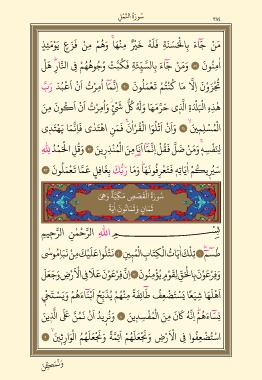 سُورَةُ النَّمْلِ
٣٨٤
مَنْ جَٓاءَ بِالْحَسَنَةِ فَلَهُ خَيْرٌ مِنْهَاۚ وَهُمْ مِنْ فَزَعٍ يَوْمَئِذٍ
اٰمِنُونَ وَمَنْ جَٓاءَ بِالسَّيِّئَةِ فَكُبَّتْ وُجُوهُهُمْ فِي النَّارِۜ هَلْ
تُجْزَوْنَ اِلَّا مَا كُنْتُمْ تَعْمَلُونَ اِنَّمَٓا اُمِرْتُ اَنْ اَعْبُدَ رَبَّ
هٰذِهِ الْبَلْدَةِ الَّذ۪ي حَرَّمَهَا وَلَهُ كُلُّ شَيْءٍۘ وَاُمِرْتُ اَنْ اَكُونَ مِنَ
الْمُسْلِم۪ينَۙ وَاَنْ اَتْلُوَا الْقُرْاٰنَۚ فَمَنِ اهْتَدٰى فَاِنَّمَا يَهْتَد۪ي
لِنَفْسِه۪ۚ وَمَنْ ضَلَّ فَقُلْ اِنَّمَٓا اَنَا۬ مِنَ الْمُنْذِر۪ينَ وَقُلِ الْحَمْدُ لِلّٰهِ
سَيُر۪يكُمْ اٰيَاتِه۪ فَتَعْرِفُونَهَاۜ وَمَا رَبُّكَ بِغَافِلٍ عَمَّا تَعْمَلُونَ
سُورَةُ الْقَصَصِ مَكِّيَّةٌ وَهِيَ
ثَمَانٍ وَثَمَانُونَ اٰيَةً
بِسْمِ اللّٰهِ الرَّحْمٰنِ الرَّح۪يمِ
طٰسٓمٓ تِلْكَ اٰيَاتُ الْكِتَابِ الْمُب۪ينِ نَتْلُوا عَلَيْكَ مِنْ نَبَأِ مُوسٰى
وَفِرْعَوْنَ بِالْحَقِّ لِقَوْمٍ يُؤْمِنُونَ اِنَّ فِرْعَوْنَ عَلَا فِي الْاَرْضِ وَجَعَلَ
اَهْلَهَا شِيَعًا يَسْتَضْعِفُ طَٓائِفَةً مِنْهُمْ يُذَبِّحُ اَبْنَٓاءَهُمْ وَيَسْتَحْي۪
نِسَٓاءَهُمْۜ اِنَّهُ كَانَ مِنَ الْمُفْسِد۪ينَ وَنُر۪يدُ اَنْ نَمُنَّ عَلَى الَّذ۪ينَ
اسْتُضْعِفُوا فِي الْاَرْضِ وَنَجْعَلَهُمْ اَئِمَّةً وَنَجْعَلَهُمُ الْوَارِث۪ينَۙ
وَنُمَكِّنَ